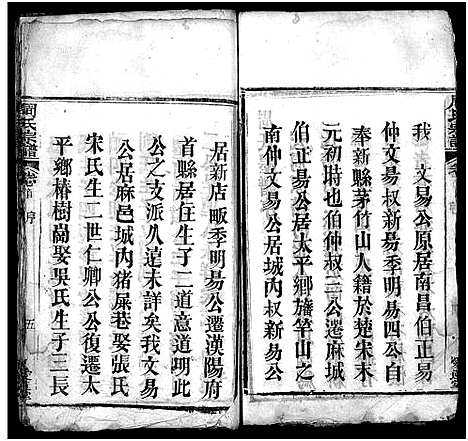 我　文易公原居南昌伯正易
仲文易叔新易季明易四公自
奉新縣茅竹山人籍於楚宋末
元初時也伯仲叔三公遷麻城
伯正易公居太平鄉旛竿山之
南仲文易公居城內叔新易公
周氏宗譜
五
居新店畈季明易公遷漢陽府
首縣居住生子二道意道明此
公之支派久違未詳矣我文易
公居麻邑城內猪屎巷娶張氏
宋氏生子二世仁卿公公復遷太
平鄉椿樹崗娶吳氏生子三長